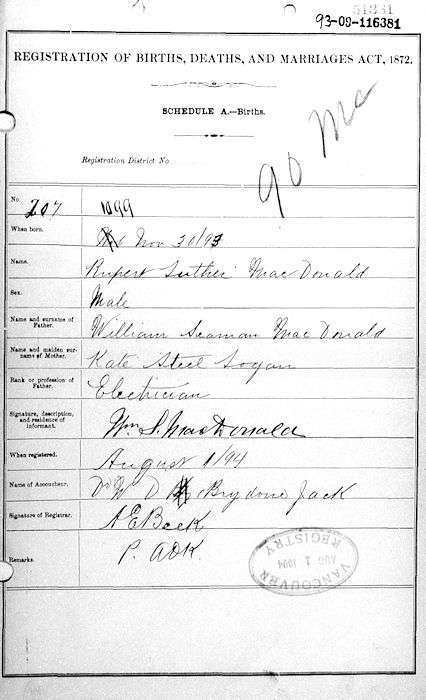 51381
93-09-116381
REGISTRATION OF BIRTHS, DEATHS, AND MARRIAGES ACT, 1872.
SCHEDULE A.—Births.
90 Mc
Registration District No
No. 207 1099
When born. Nov 30/93
Name. Rupert Luther MacDonald
Sex. Male
Name and surname of Father. William Seaman MacDonald
Name and maiden surname of Mother. Kate Steel Logan
Rank or profession of Father. Electrician
Signature, description, and residence of informant. Wm S. MacDonald
When registered. August 1/94
Name of Accoucheur. Dr W D Brydone Jack
Signature of Registrar. A E Beck
Remarks. P.
VANCOUVER
AUG 1 1894
REGISTRY